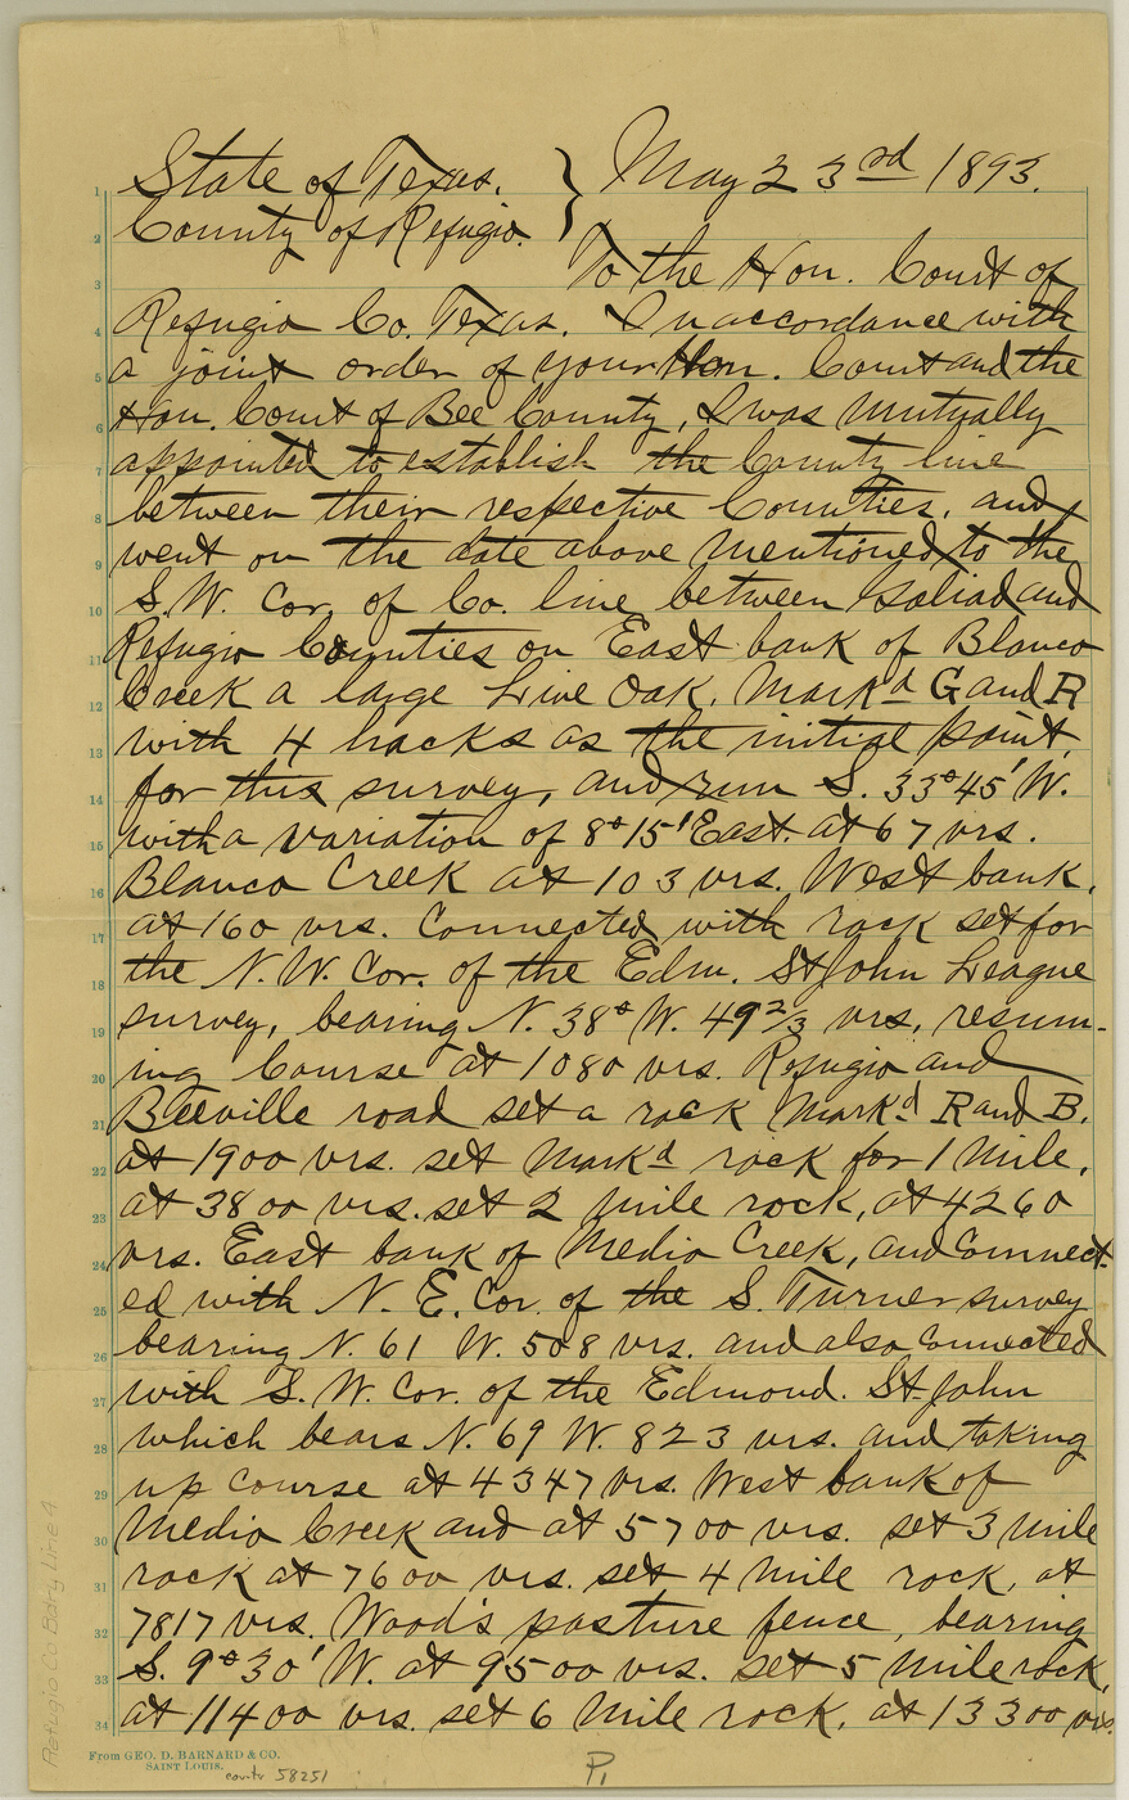 State of Texas. } May 23rd 1893.
County of Refugio. }
To the Hon. Court of
Refugio Co. Texas. In accordance with
a joint order of your Hon. Court and the
Hon. Court of Bee County, I was mutually
appointed to establish the County line
between their respective Counties, and
went on the date above mentioned to the
S.W. Cor. of Co. line between Goliad and
Refugio Counties on East bank of Blanco
Creek a large Live Oak, Markd G and R
with 4 hacks as the initial point,
for this survey, and run S. 33° 45' W.
with a variation of 8° 15' East. at 67 vrs.
Blanco Creek at 103 vrs. West bank,
at 160 vrs. Connected with rock set for
the N.W. Cor. of the Edm. St John League
survey, bearing N. 38° W. 49 2/3 vrs, resum-
ing Course at 1080 vrs. Refugio and
Beeville road set a rock Markd R and B.
at 1900 vrs. set Markd rock for 1 Mile,
at 3800 vrs. set 2 mile rock, at 4260
vrs. East bank of Medio Creek, and Connect-
ed with N.E. Cor. of the S. Turner survey
bearing N. 61 W. 508 vrs. and also Connected
with S.W. Cor. of the Edmond. St. John
which bears N. 69 W. 823 vrs. and taking
up course at 4347 vrs. West bank of
Medio Creek and at 5700 vrs. set 3 mile
rock at 7600 vrs. set 4 mile rock, at
7817 vrs. Wood's pasture fence, bearing
S. 9° 30' W. at 9500 vrs. set 5 Mile rock,
at 11400 vrs. set 6 Mile rock, at 13300 vrs.
1
2
3
4
5
6
7
8
9
10
11
12
13
14
15
16
17
18
19
20
21
22
23
24
25
26
27
28
29
30
31
32
33
34
From GEO. D. BARNARD & CO.
SAINT LOUIS.
counter 58251
P1
Refugio Co Bdry Line 9